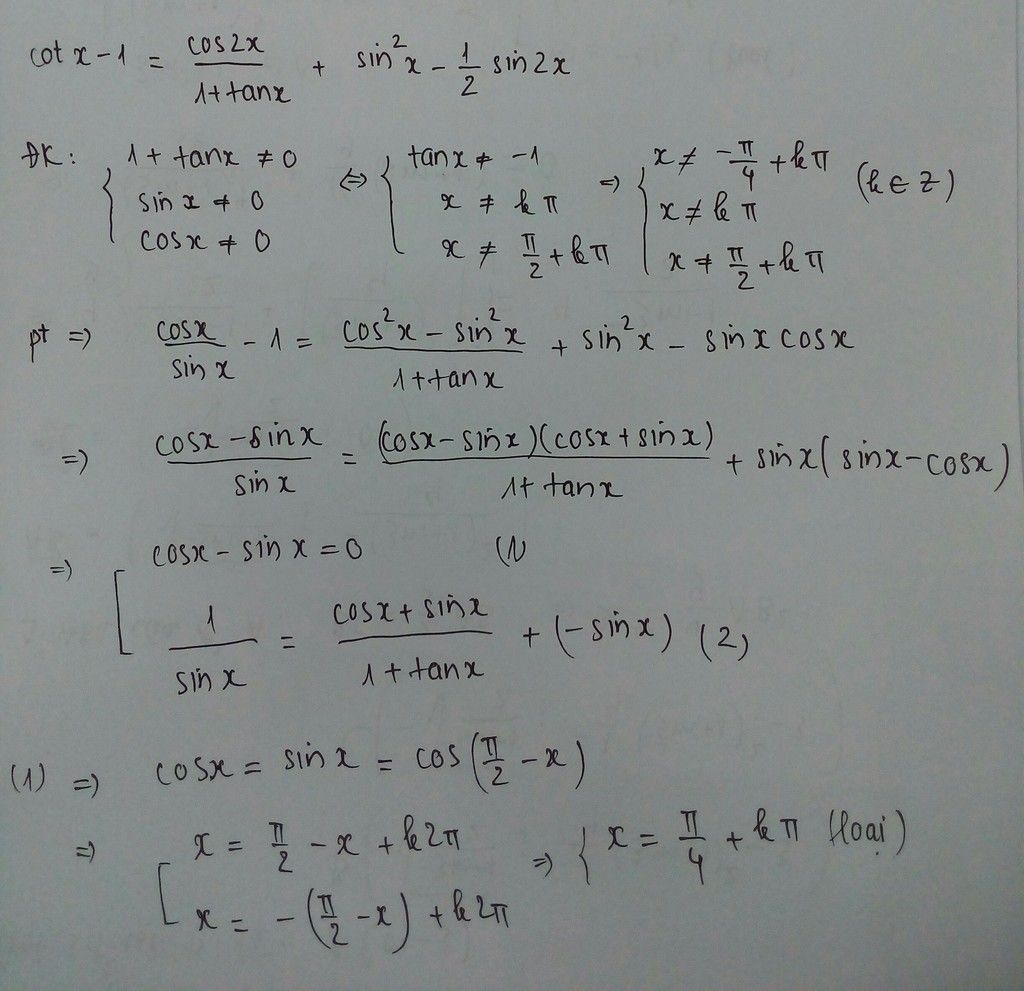 cot x - 1 = cos2x / (1 + tanx) + sin²x - 1/2 sin2x
ĐK: { 1 + tanx ≠ 0 ; sin x ≠ 0 ; cosx ≠ 0 ⇔ { tanx ≠ -1 ; x ≠ kπ ; x ≠ π/2 + kπ ⇒ { x ≠ -π/4 + kπ ; x ≠ kπ ; x ≠ π/2 + kπ (k ∈ Z)
pt ⇒ cosx / sin x - 1 = (cos²x - sin²x) / (1 + tanx) + sin²x - sin x cosx
⇒ (cosx - sinx) / sin x = (cosx - sinx)(cosx + sinx) / (1 + tanx) + sinx(sinx - cosx)
⇒ [ cosx - sin x = 0 (1)
1 / sin x = (cosx + sinx) / (1 + tanx) + (-sinx) (2)
(1) ⇒ cosx = sin x = cos(π/2 - x)
⇒ [ x = π/2 - x + k2π ; x = -(π/2 - x) + k2π ⇒ { x = π/4 + kπ (loại)